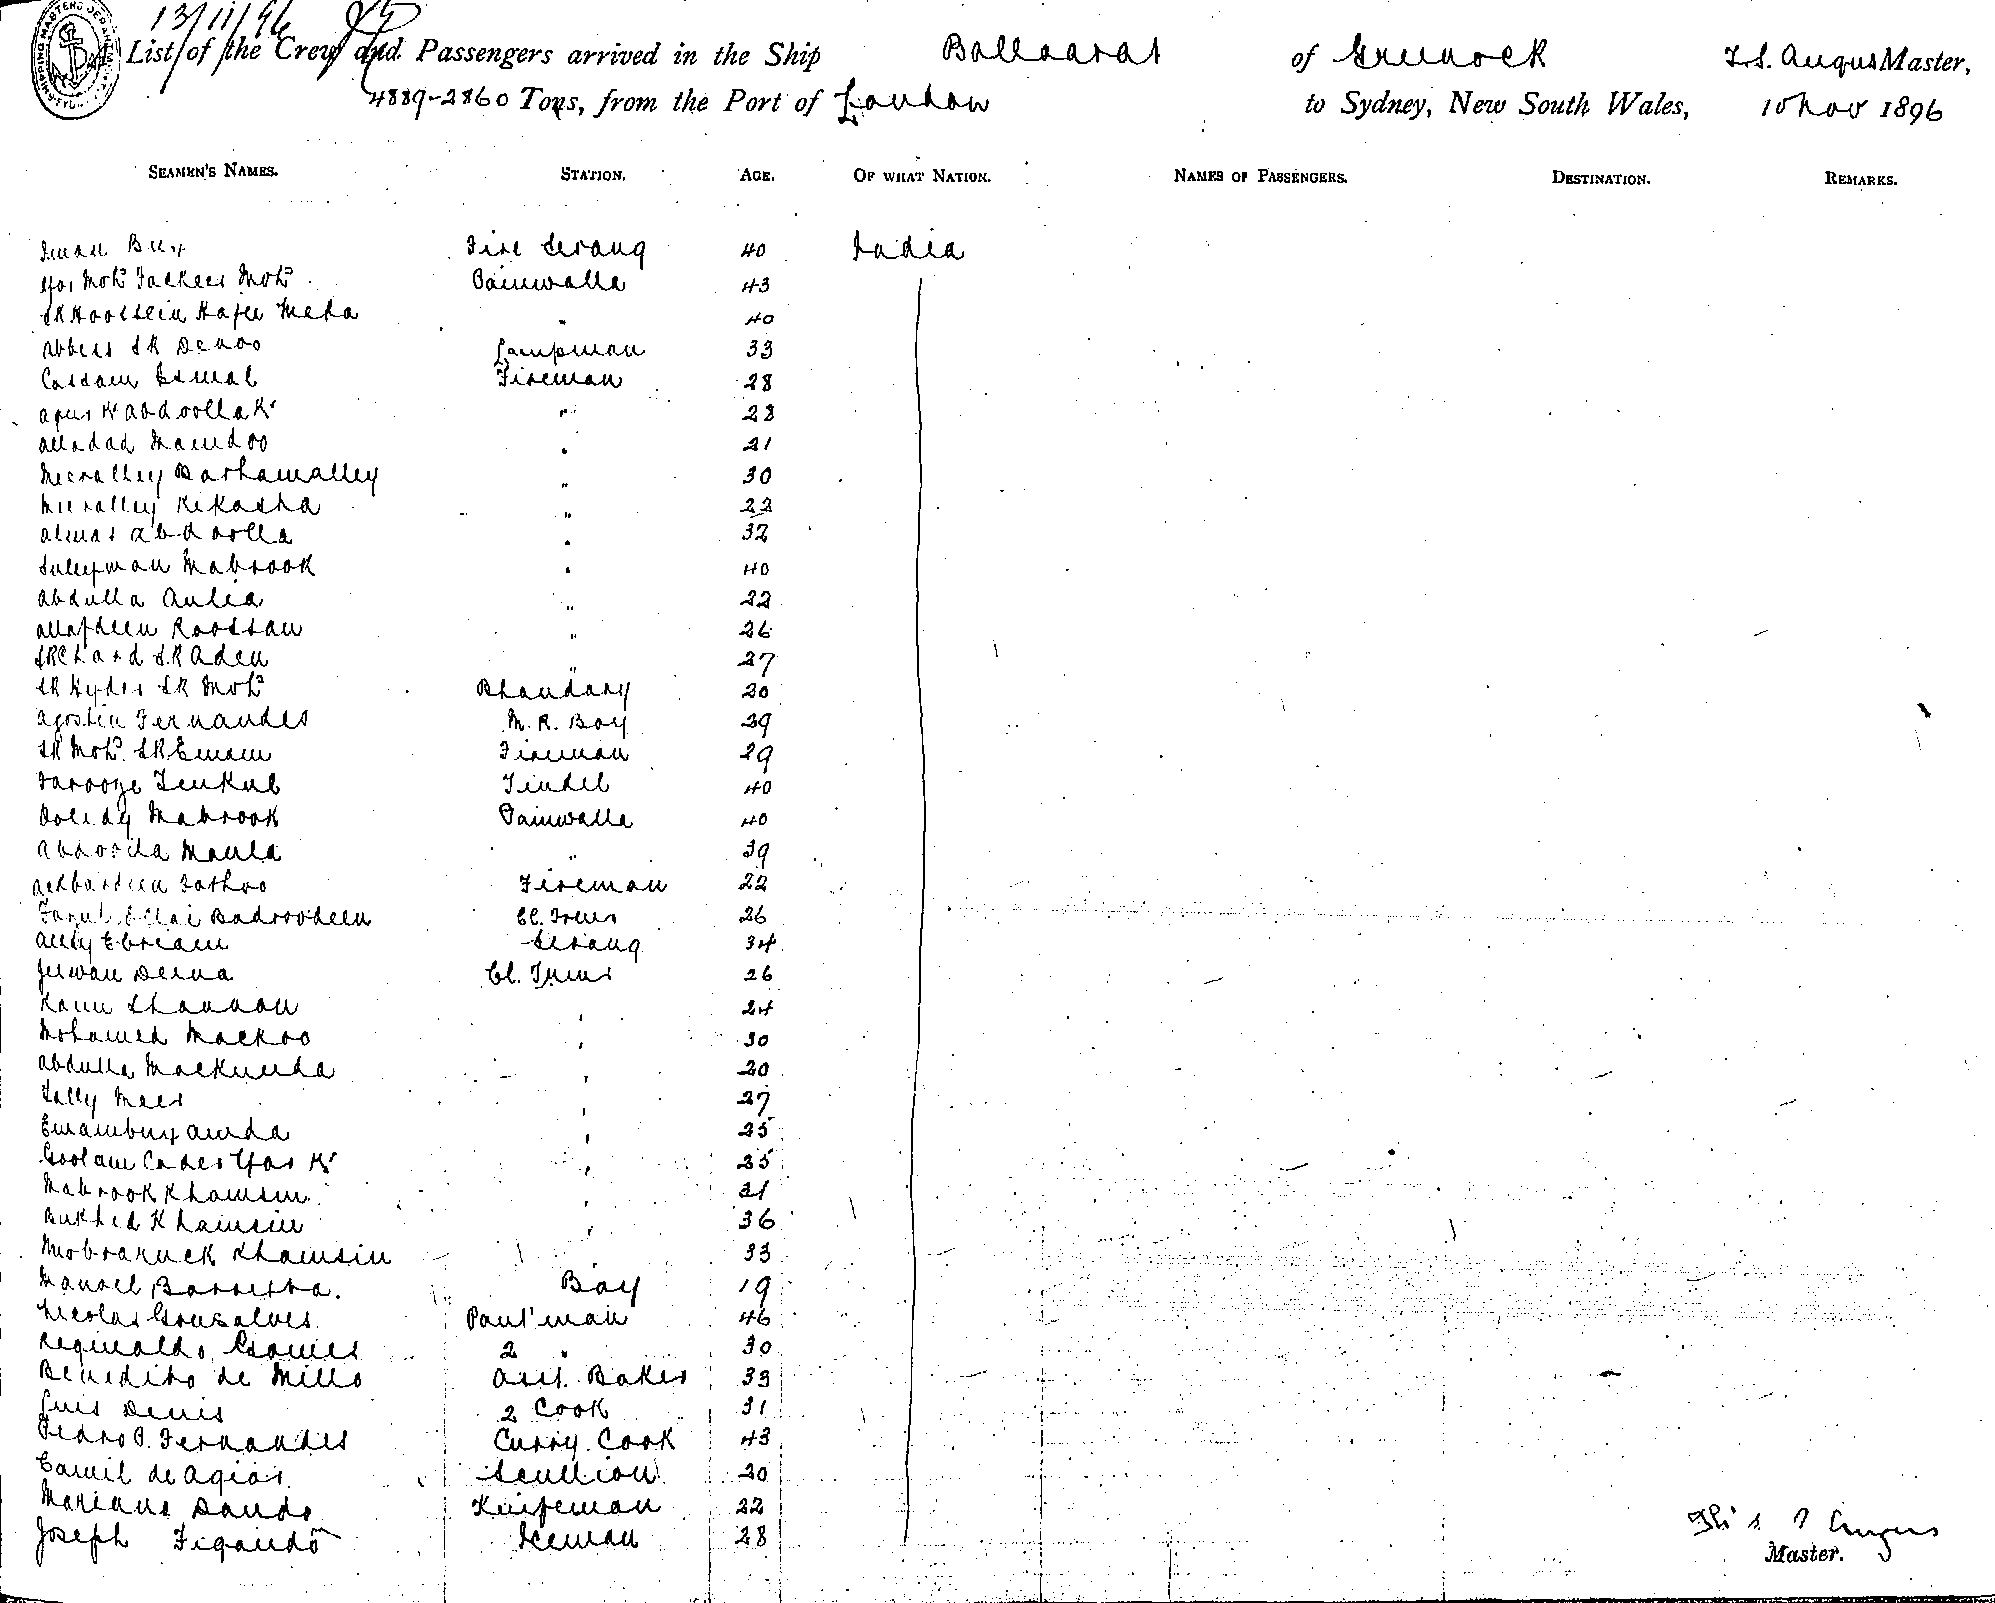 13/11/96 95
List of the Crew and Passengers arrived in the Ship Ballaarat of Greenock T.S. Angus Master,
4889-2860 Tons, from the Port of London to Sydney, New South Wales, 10 Nov 1896
SEAMEN'S NAMES. STATION. AGE. OF WHAT NATION. NAMES OF PASSENGERS. DESTINATION. REMARKS.
Iman Bux Fire Serang 40 India
Yar Moh<sup>d</sup> Fackeer Moh<sup>d</sup> Painwalla 43
SK Hoossein Hajee Meha " 40
Abbess SK Denoo Lampman 33
Cassam Esmal Fireman 28
K Abdoolla K " 28
Alladad Mamdoo " 21
Meeralley Barhamalley " 30
Meeralley Kikasha " 22
Almas Abdoolla " 32
Suleyman Mabrook " 40
Abdulla Aulia " 22
Roossan " 26
SK Chand SK Aden " 27
SK Hyder SK Moh<sup>d</sup> Bhandary 20
Agostin Fernandes M. R. Boy 29
SK Moh<sup>d</sup> SK Emam Fireman 29
Farooze Tenkul Tindel 40
Mabrook Painwalla 40
Maula " 39
Fireman 22
Badroodeen Cl. Trms 26
Ally Ebriam Serang 34
Jeewan Deena Cl. Trms 26
Shannon " 24
Mohamed Mackoo " 30
Abdulla Mackunda " 20
Meer " 27
Emambux " 25
Goolam Cader Yar K " 25
Mabrook Khamsin " 21
Khamsin " 36
Khamsin " 33
Manoel Barretta. Boy 19
Nicolas Gonsalves Pant'man 46
Reginaldo Gomes 2 " 30
Benedito de Mello Asst. Baker 33
Luis Denis 2 Cook 31
Pedro P. Fernandes Curry Cook 43
Camil de Agiar Scullion 20
Mariano Knifeman 22
Joseph Figando Iceman 28
Angus
Master.